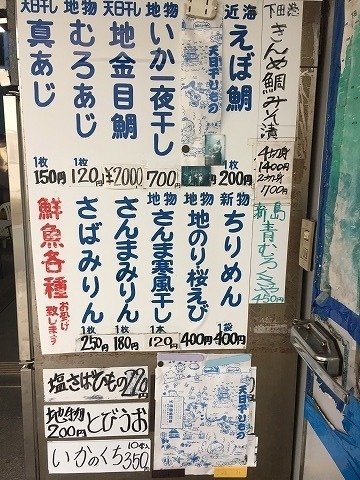 下田港
きんめ鯛みそ漬
4切身
1400円
2切身
700円
新島
青むろくさや
450円
近海
えぼ鯛
1枚
200円
天日干しもの
地物
いか一夜干し
700円
天日干し
地金目鯛
¥2000
地物
むろあじ
1枚
120円
天日干し
真あじ
1枚
150円
新物
ちりめん
1袋
400円
地物
地のり桜えび
400円
地物
さんま寒風干し
1本
120円
さんまみりん
1枚
180円
さばみりん
1枚
250円
鮮魚各種
お受け致します
塩さばひもの220円
地物
200円
とびうお
いかのくち
10本入
350円
天日干しもの